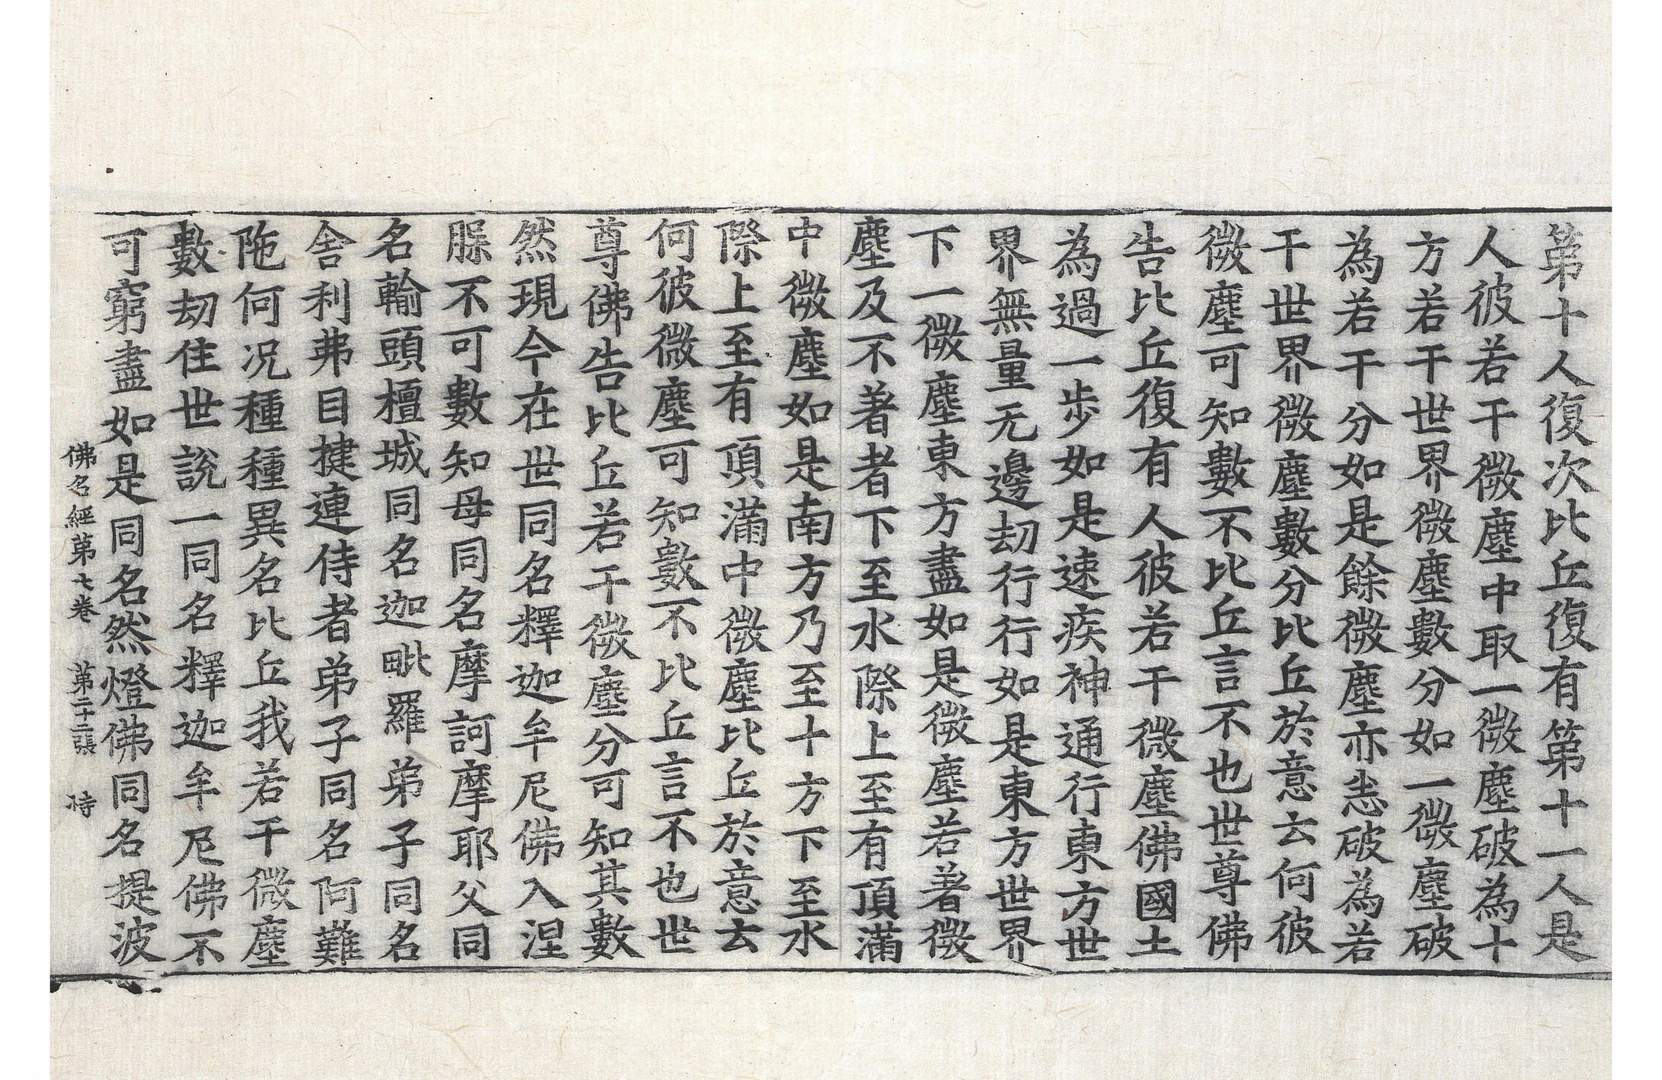 第十人復次比丘復有第十一人是
人彼若干微塵中取一微塵破為十
方若干世界微塵數分如一微塵破
為若干分如是餘微塵亦悉破為若
干世界微塵數分比丘於意云何彼
微塵可知數不比丘言不也世尊佛
告比丘復有人彼若干微塵佛國土
為過一步如是速疾神通行東方世
界無量无邊劫行行如是東方世界
下一微塵東方盡如是微塵若著微
塵及不著者下至水際上至有頂滿
中微塵如是南方乃至十方下至水
際上至有頂滿中微塵比丘於意云
何彼微塵可知數不比丘言不也世
尊佛告比丘若干微塵分可知其數
然現今在世同名釋迦牟尼佛入涅
𦙶不可數知母同名摩訶摩耶父同
名輸頭檀城同名迦毗羅弟子同名
舍利弗目揵連侍者弟子同名阿難
陁何况種種異名比丘我若干微塵
數劫住世說一同名釋迦牟尼佛不
可窮盡如是同名然燈佛同名提波
佛名經第七卷 第二十二張 恃